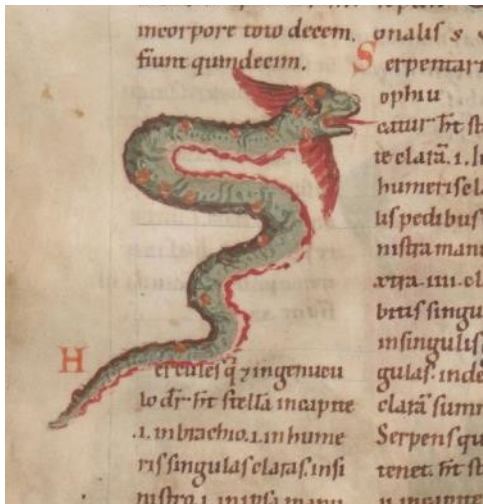 incorpore toto decem.
fiunt quindecim.
H
ercules q̄ ⁊ ingenucu
lo dr̄ ht̄ stellā incapite
.1. inbrachio.1. inhume
ris singulas claras. insi
nistra.1. inipsa manu
onalis s
S erpentari
ophiu
catur ht̄ st
te clarā .1. h
humeris el
us pedibus
nistra man
xtra .IIII. cl
bitis singu
insingulis
gulas. inde
clarā summ
Serpens qu
tenet. ht̄ st